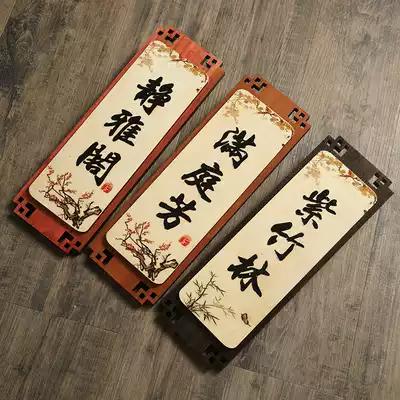 静雅阁
满庭芳
紫竹林